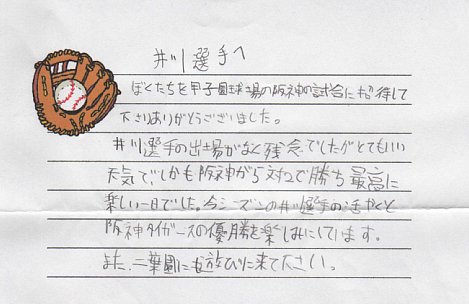 井川選手へ
ぼくたちを甲子園球場の阪神の試合にご招待して
下さりありがとうございました。
井川選手の出場がなく残念でしたがとてもいい
天気でしかも阪神が5対2で勝ち最高に
楽しい一日でした。今シーズンの井川選手の活やくと
阪神タイガースの優勝を楽しみにしています。
また、二葉園にも遊びに来て下さい。